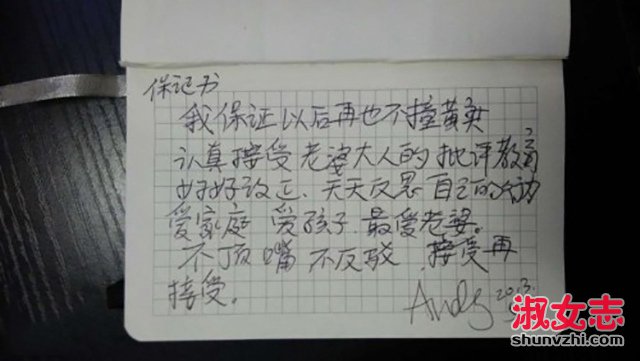 保证书
我保证以后再也不撞黄
认真接受老婆大人的批评教育
好好改正、天天反思自己的动
爱家庭 爱孩子.最爱老婆。
不顶嘴 不反驳.接受再
接受.
Andy 2013.
淑女志
shunvzhi.com